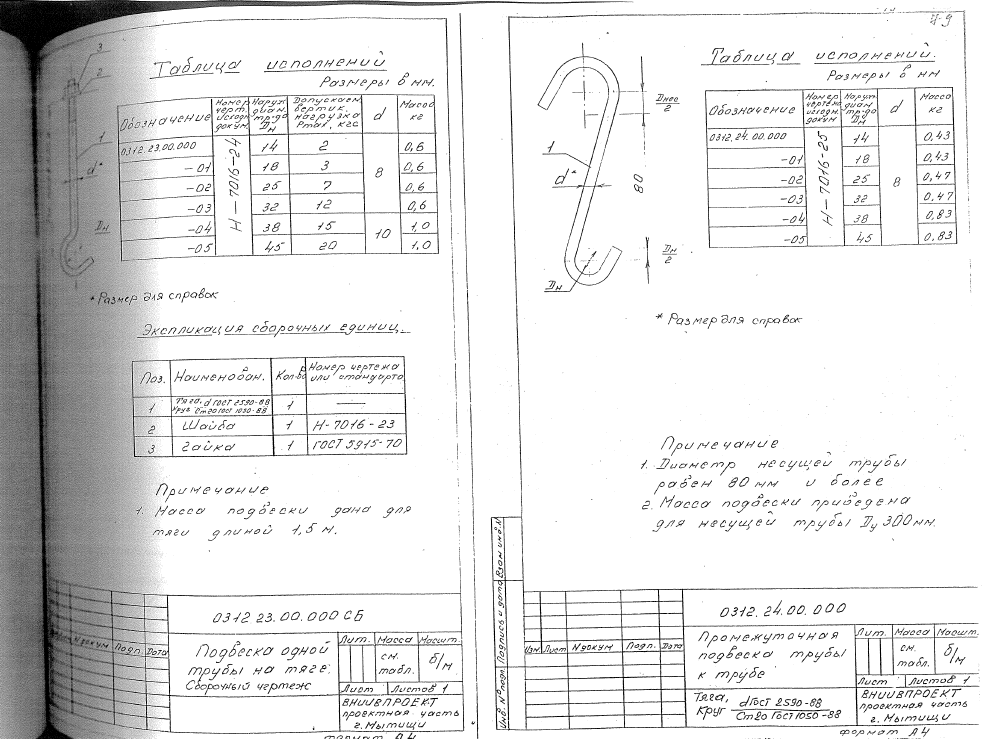 3
2
1
d*
Dн
Таблица исполнений
Размеры в мм.
Обозначение Номер черт. исходн. докум. Наруж. диам. тр-да Dн Допускаем. вертик. нагрузка Pmax, кгс d Масса кг
0312.23.00.000 Н-7016-24 14 2 8 0,6
-01 18 3 0,6
-02 25 7 0,6
-03 32 12 0,6
-04 38 15 10 1,0
-05 45 20 1,0
* Размер для справок
Экспликация сборочных единиц
Поз. Наименован. Кол-во Номер чертежа или стандарта
1 Тяга, d ГОСТ 2590-88 Круг Ст20 ГОСТ 1050-88 1 —
2 Шайба 1 Н-7016-23
3 Гайка 1 ГОСТ 5915-70
Примечание
1. Масса подвески дана для
тяги длиной 1,5 м.
0312 23.00.000 СБ
N докум Подп. Дата
Подвеска одной
трубы на тяге.
Сборочный чертеж
Лит. Масса Масшт.
см. табл. б/м
Лист Листов 1
ВНИИВПРОЕКТ
проектная часть
г. Мытищи
формат А4
II-9
Dнес/2
1
d*
80
Dн/2
Dн
Таблица исполнений.
Размеры в мм
Обозначение Номер чертежа исходн. докум Наруж. диам. тр-да Dн d Масса кг
0312.24.00.000 Н-7016-25 14 8 0,43
-01 18 0,43
-02 25 0,47
-03 32 0,47
-04 38 0,83
-05 45 0,83
* Размер для справок
Примечание
1. Диаметр несущей трубы
равен 80 мм и более
2. Масса подвески приведена
для несущей трубы Dу 300мм.
Инв. № подл. Подпись и дата Взам инв. №
0312.24.00.000
Изм Лист N докум Подп. Дата
Промежуточная
подвеска трубы
к трубе
Лит. Масса Масшт.
см. табл. б/м
Лист Листов 1
Тяга, Круг d ГОСТ 2590-88
Ст20 ГОСТ 1050-88
ВНИИВПРОЕКТ
проектная часть
г. Мытищи
формат А4